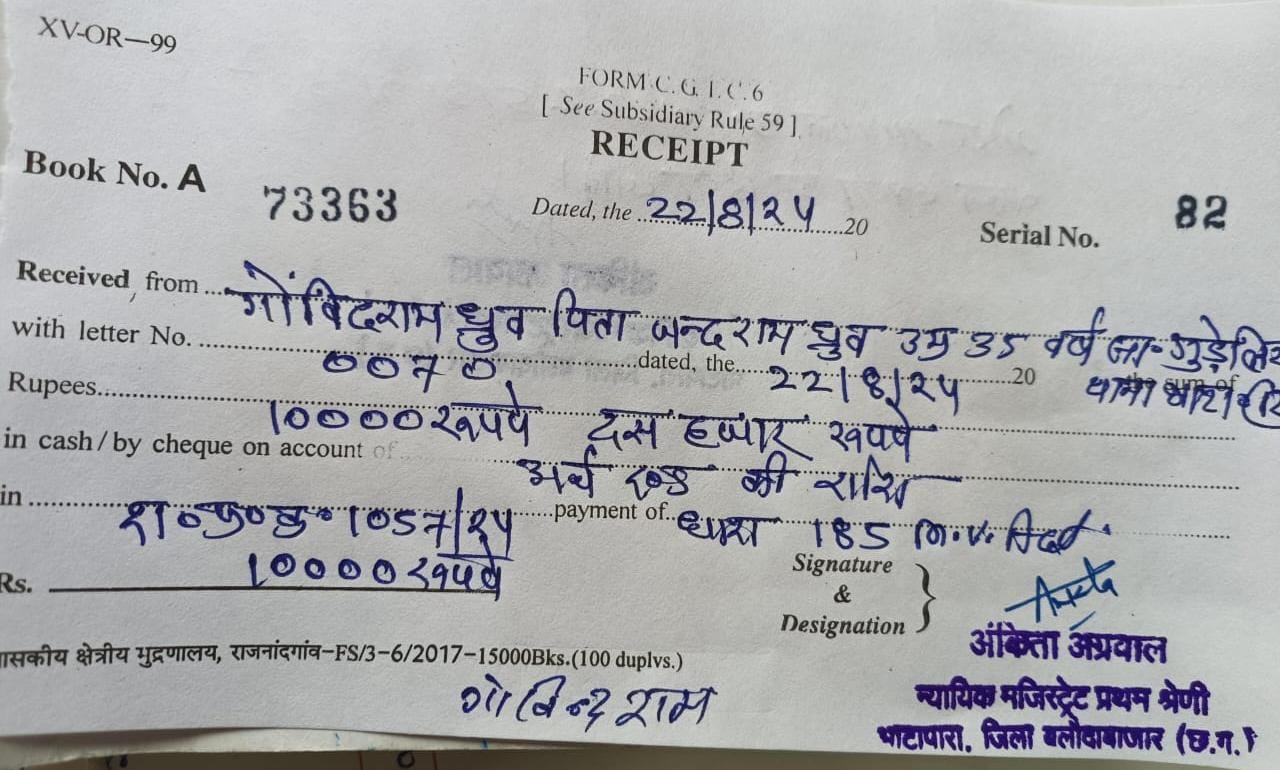 XV-OR—99
FORM C. G. T. C. 6
[ See Subsidiary Rule 59 ]
RECEIPT
Book No. A 73363 Dated, the 22/8/24 20 Serial No. 82
Received from गोविंदराम ध्रुव पिता चन्दराम ध्रुव उम्र 35 वर्ष सा॰ गुड़ेलिया
with letter No. 0070 dated, the 22/8/24 20 the sum of थाना भाटा
Rupees 10000 रूपये दस हजार रूपये
in cash/by cheque on account of अर्थ दण्ड की राशि
in रा॰ प्र॰ क्र॰ 1057/24 payment of धारा 185 M.V. Act.
Rs. 10000 रूपये
Signature
&
Designation
अंकिता अग्रवाल
न्यायिक मजिस्ट्रेट प्रथम श्रेणी
भाटापारा, जिला बलौदाबाजार (छ.ग.)
ासकीय क्षेत्रीय मुद्रणालय, राजनांदगांव–FS/3-6/2017–15000Bks.(100 duplvs.)
गोविन्द राम